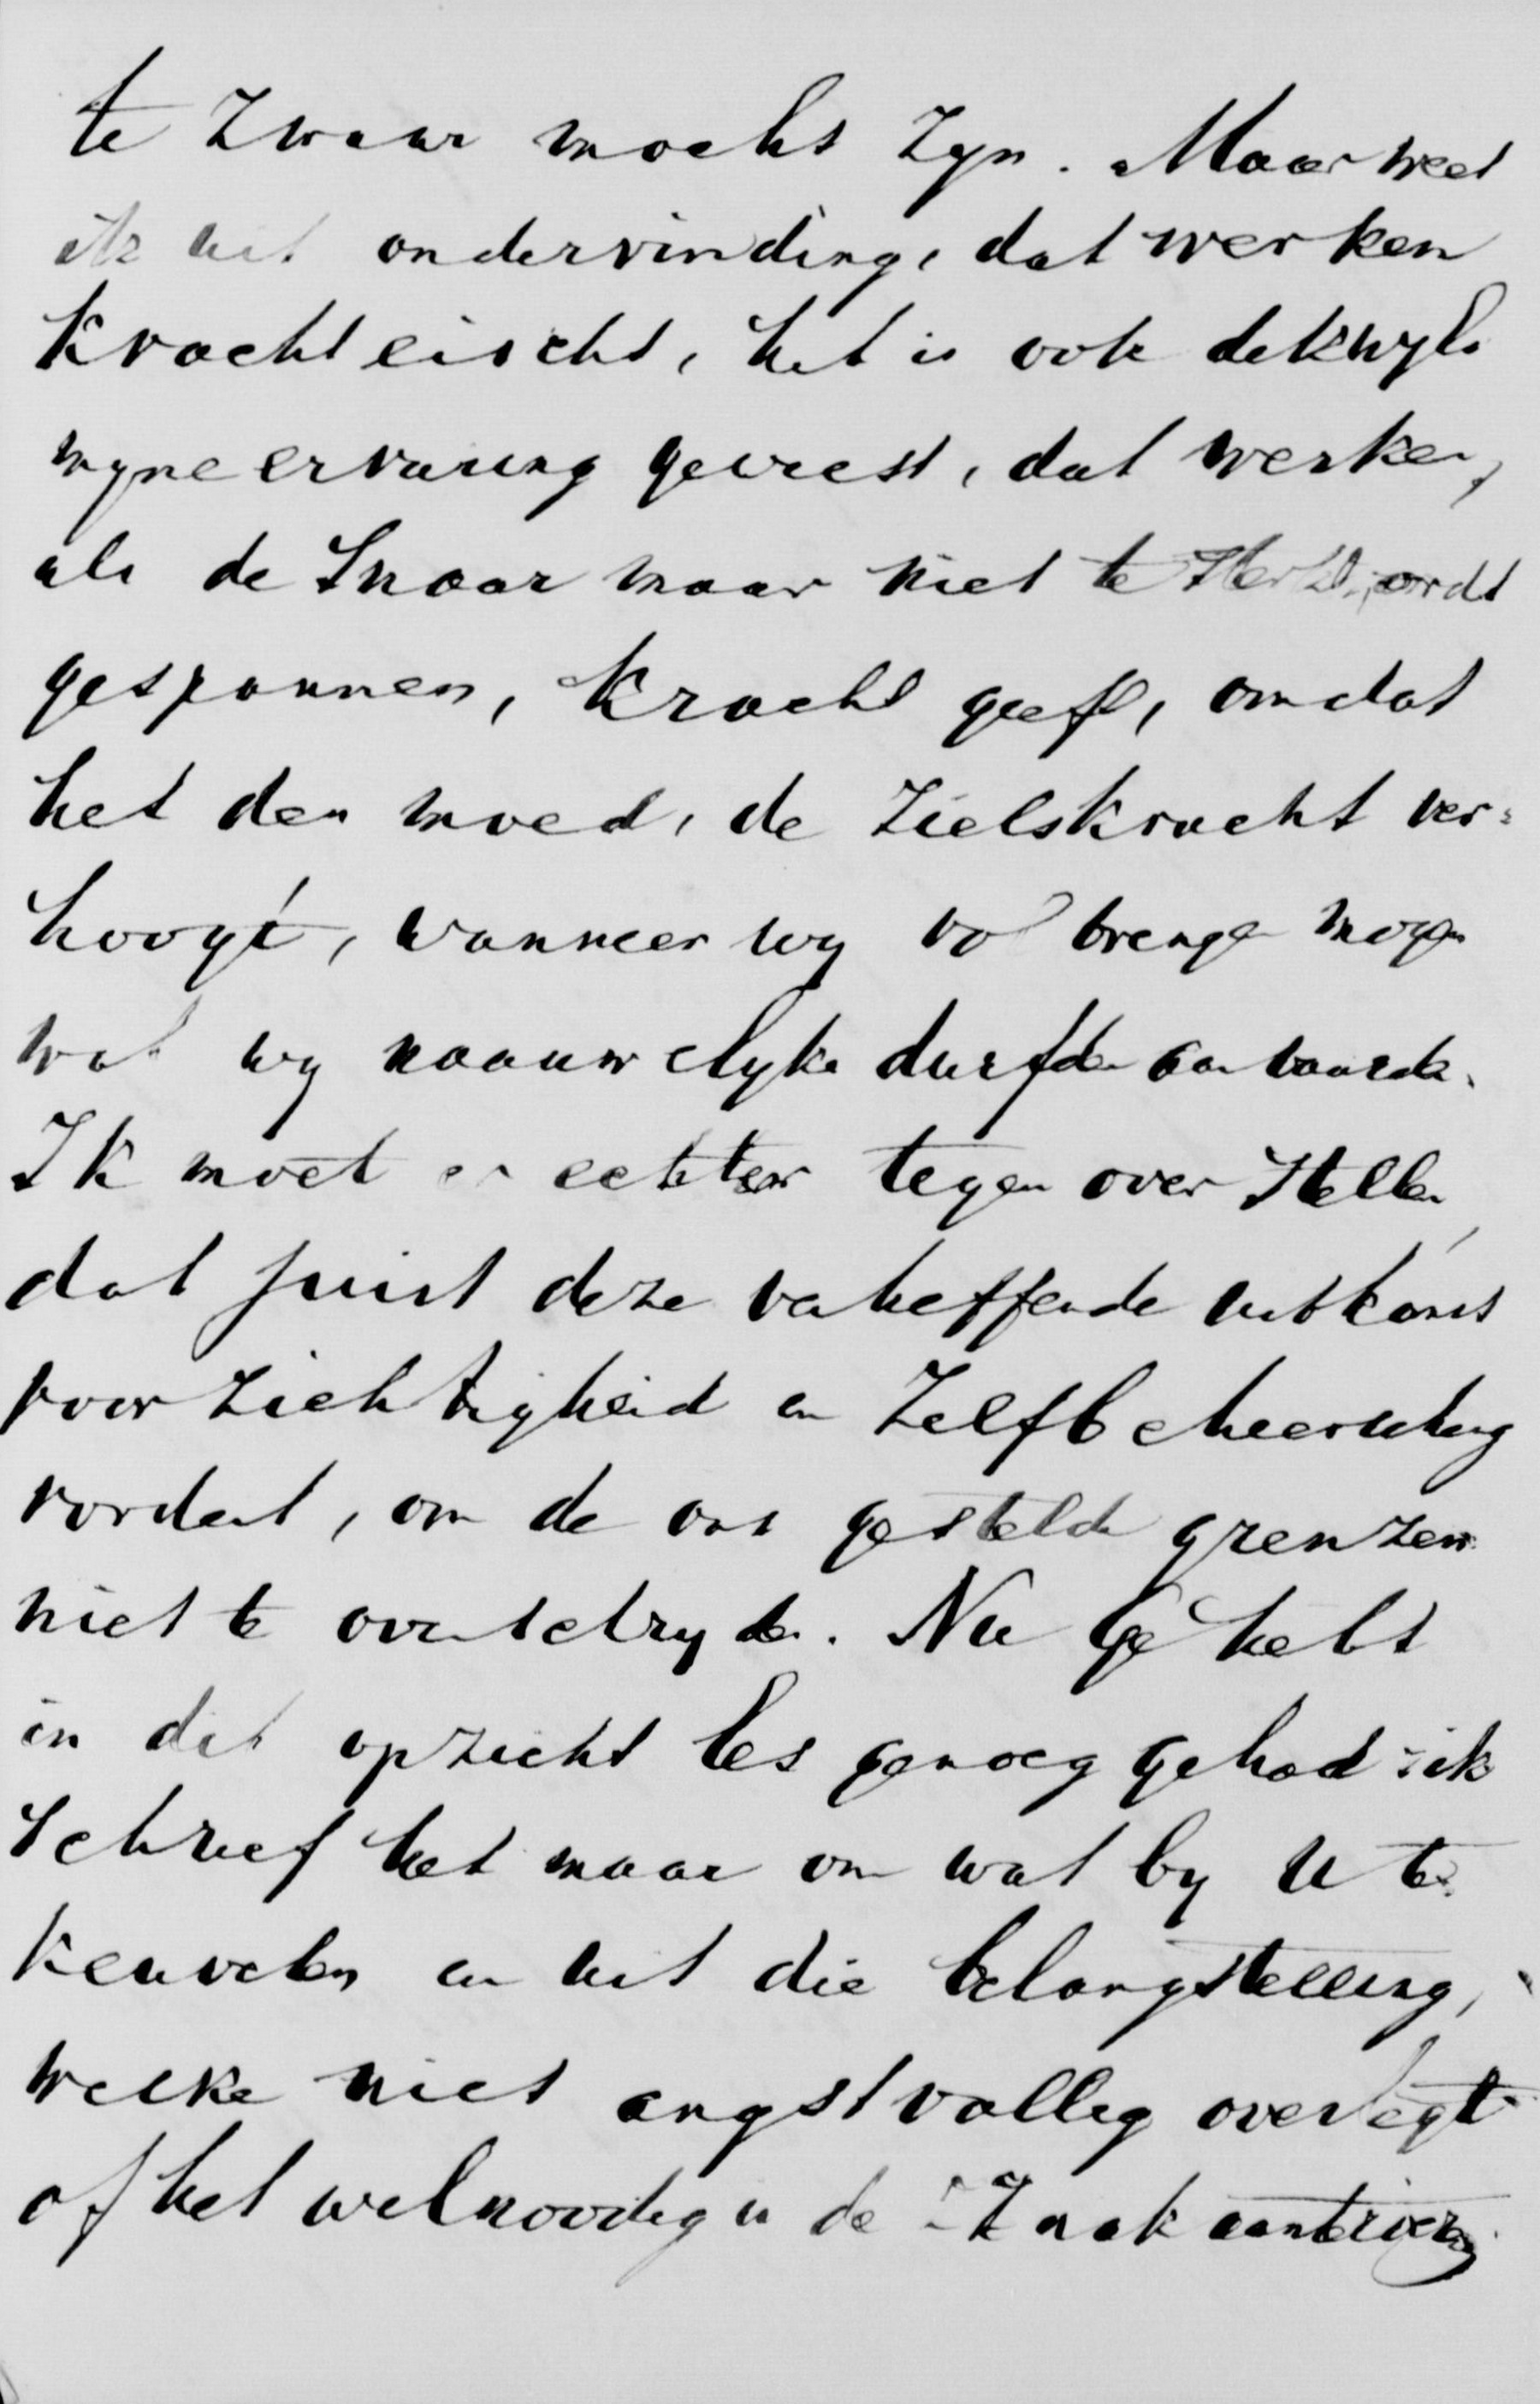 te zwaar mocht zyn. Maar weet
ik uit ondervinding, dat werken
kracht eischt, het is ook dikwyls
myne ervaring geweest, dat werken,
als de snaar maar niet te sterk wordt
gespannen, kracht geeft, omdat
het den moed, de zielskracht ver=
hoogt, wanneer wy vol brengen mogen
wat wy naauwelyks durfden aanvaarden.
Ik moet er echter tegen over stellen,
dat juist deze verheffende uitkomst
voorzichtigheid en zelfbeheersching
vordert, om de ons gestelde grenzen
niet te overschryden. Nu ge hebt
in dit opzicht les genoeg gehad : ik
schreef het maar om wat by U te
keuvelen en uit die belangstelling,
welke niet angstvallig overlegt
of het wel noodig is de zaak aanteroeren